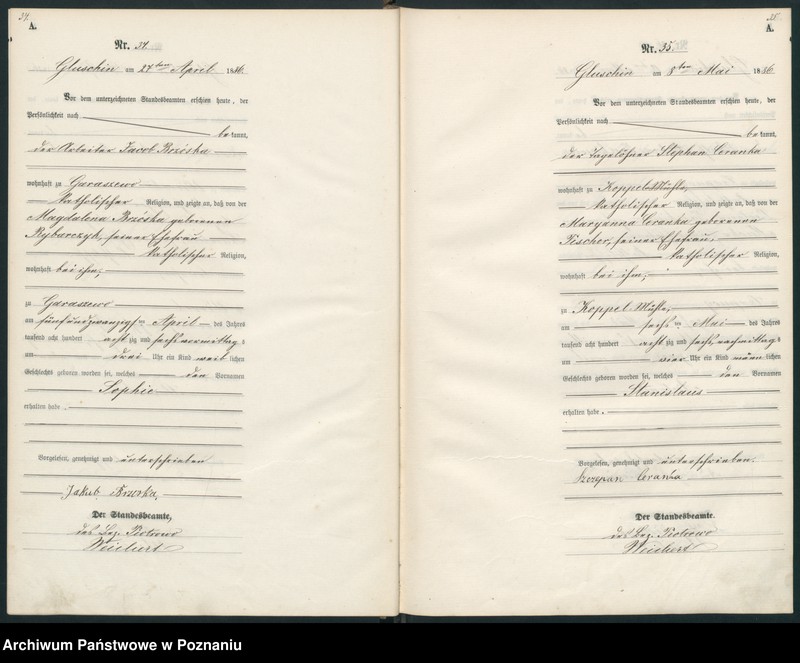 34.
A.
Nr. 34.
Gluschin am 27ten April 1886.
Vor dem unterzeichneten Standesbeamten erschien heute, der
Persönlichkeit nach
bekannt,
der Arbeiter Jacob Brzóska
wohnhaft zu Garaszewo
katholischer Religion, und zeigte an, daß von der
Magdalena Brzóska geborenen
Rybarczyk, seiner Ehefrau
katholischer Religion,
wohnhaft bei ihm,
zu Garaszewo
am fünfundzwanzigsten April des Jahres
tausend acht hundert achtzig und sechs vormittags
um drei Uhr ein Kind weiblichen
Geschlechts geboren worden sei, welches den Vornamen
Sophie
erhalten habe.
Vorgelesen, genehmigt und unterschrieben
Jakub
Der Standesbeamte,
des Bez. Piotrowo
Weichert
35.
A.
Nr. 35.
Gluschin am 8ten Mai 1886
Vor dem unterzeichneten Standesbeamten erschien heute, der
Persönlichkeit nach
bekannt,
der Tagelöhner Stephan Ceranka
wohnhaft zu Koppel-Mühle,
katholischer Religion, und zeigte an, daß von der
Maryanna Ceranka geborenen
Fischer, seiner Ehefrau,
katholischer Religion,
wohnhaft bei ihm,
zu Koppel Mühle,
am sechsten Mai des Jahres
tausend acht hundert achtzig und sechs nachmittags
um vier Uhr ein Kind männlichen
Geschlechts geboren worden sei, welches den Vornamen
Stanislaus
erhalten habe.
Vorgelesen, genehmigt und unterschrieben.
Szczepan
Der Standesbeamte.
des Bez. Piotrowo
Weichert
Archiwum Państwowe w Poznaniu